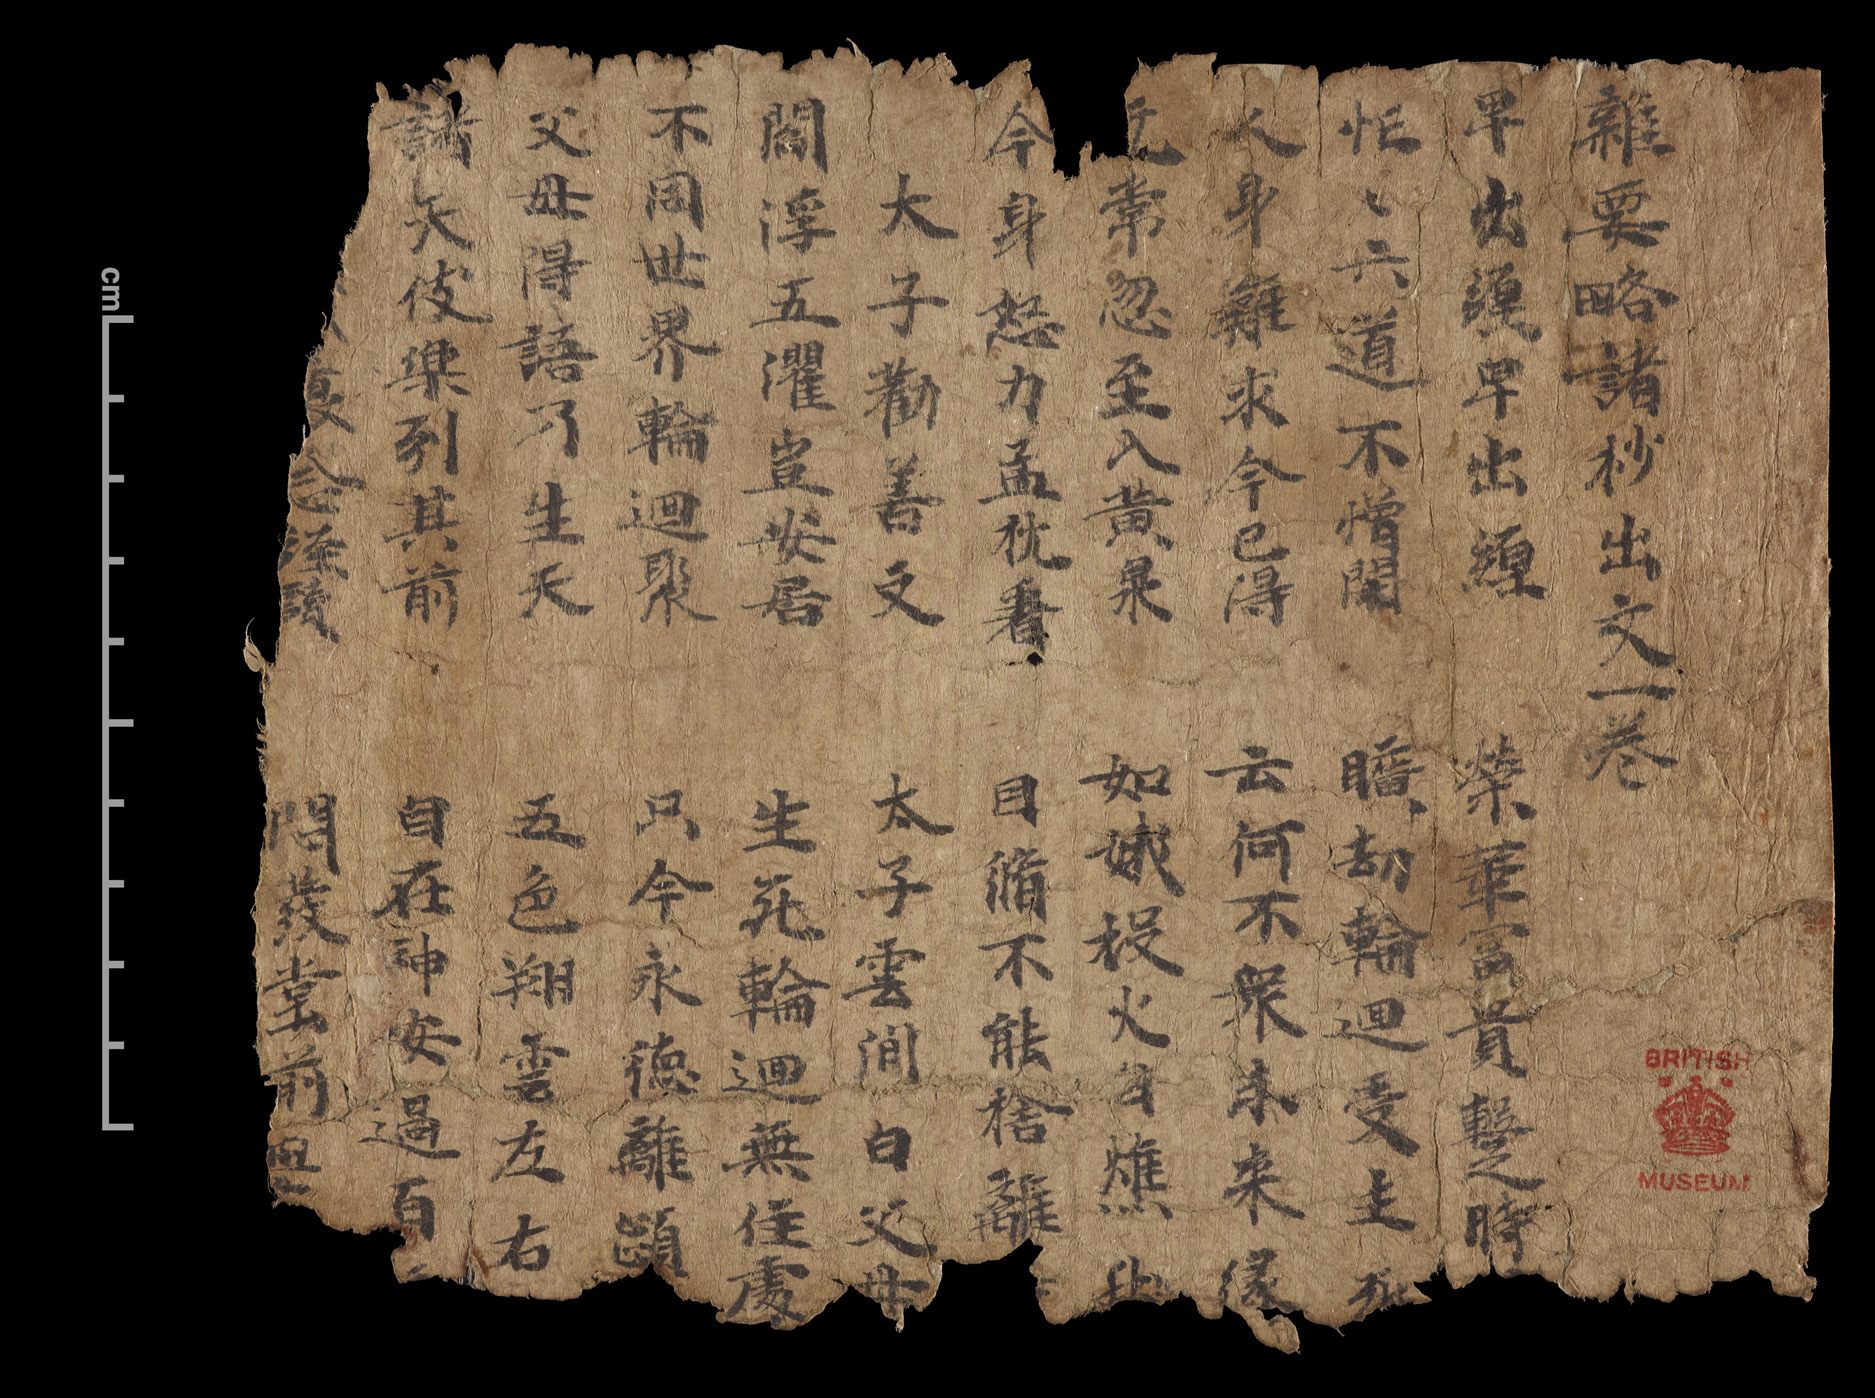 雜要略諸杪出文一卷
早出纏早出纏 榮華富貴暫之時
忙〻六道不憎閑 曠劫輪迴受生死
人身難求今已得 云何不眾未來緣
无常忽至入黃泉 如蛾投火自燋
今身怒力孟枕看 目觀不能捨離
太子勸善文 太子雲間白父母
閻浮五濁豈安居 生死輪迴無住處
不因世界輪迴聚 只今永德離
父母得語乃生天 五色翔雲左右
諸天伎樂引其前 自在神安過百
念 問發堂前
cm
BRITISH
MUSEUM